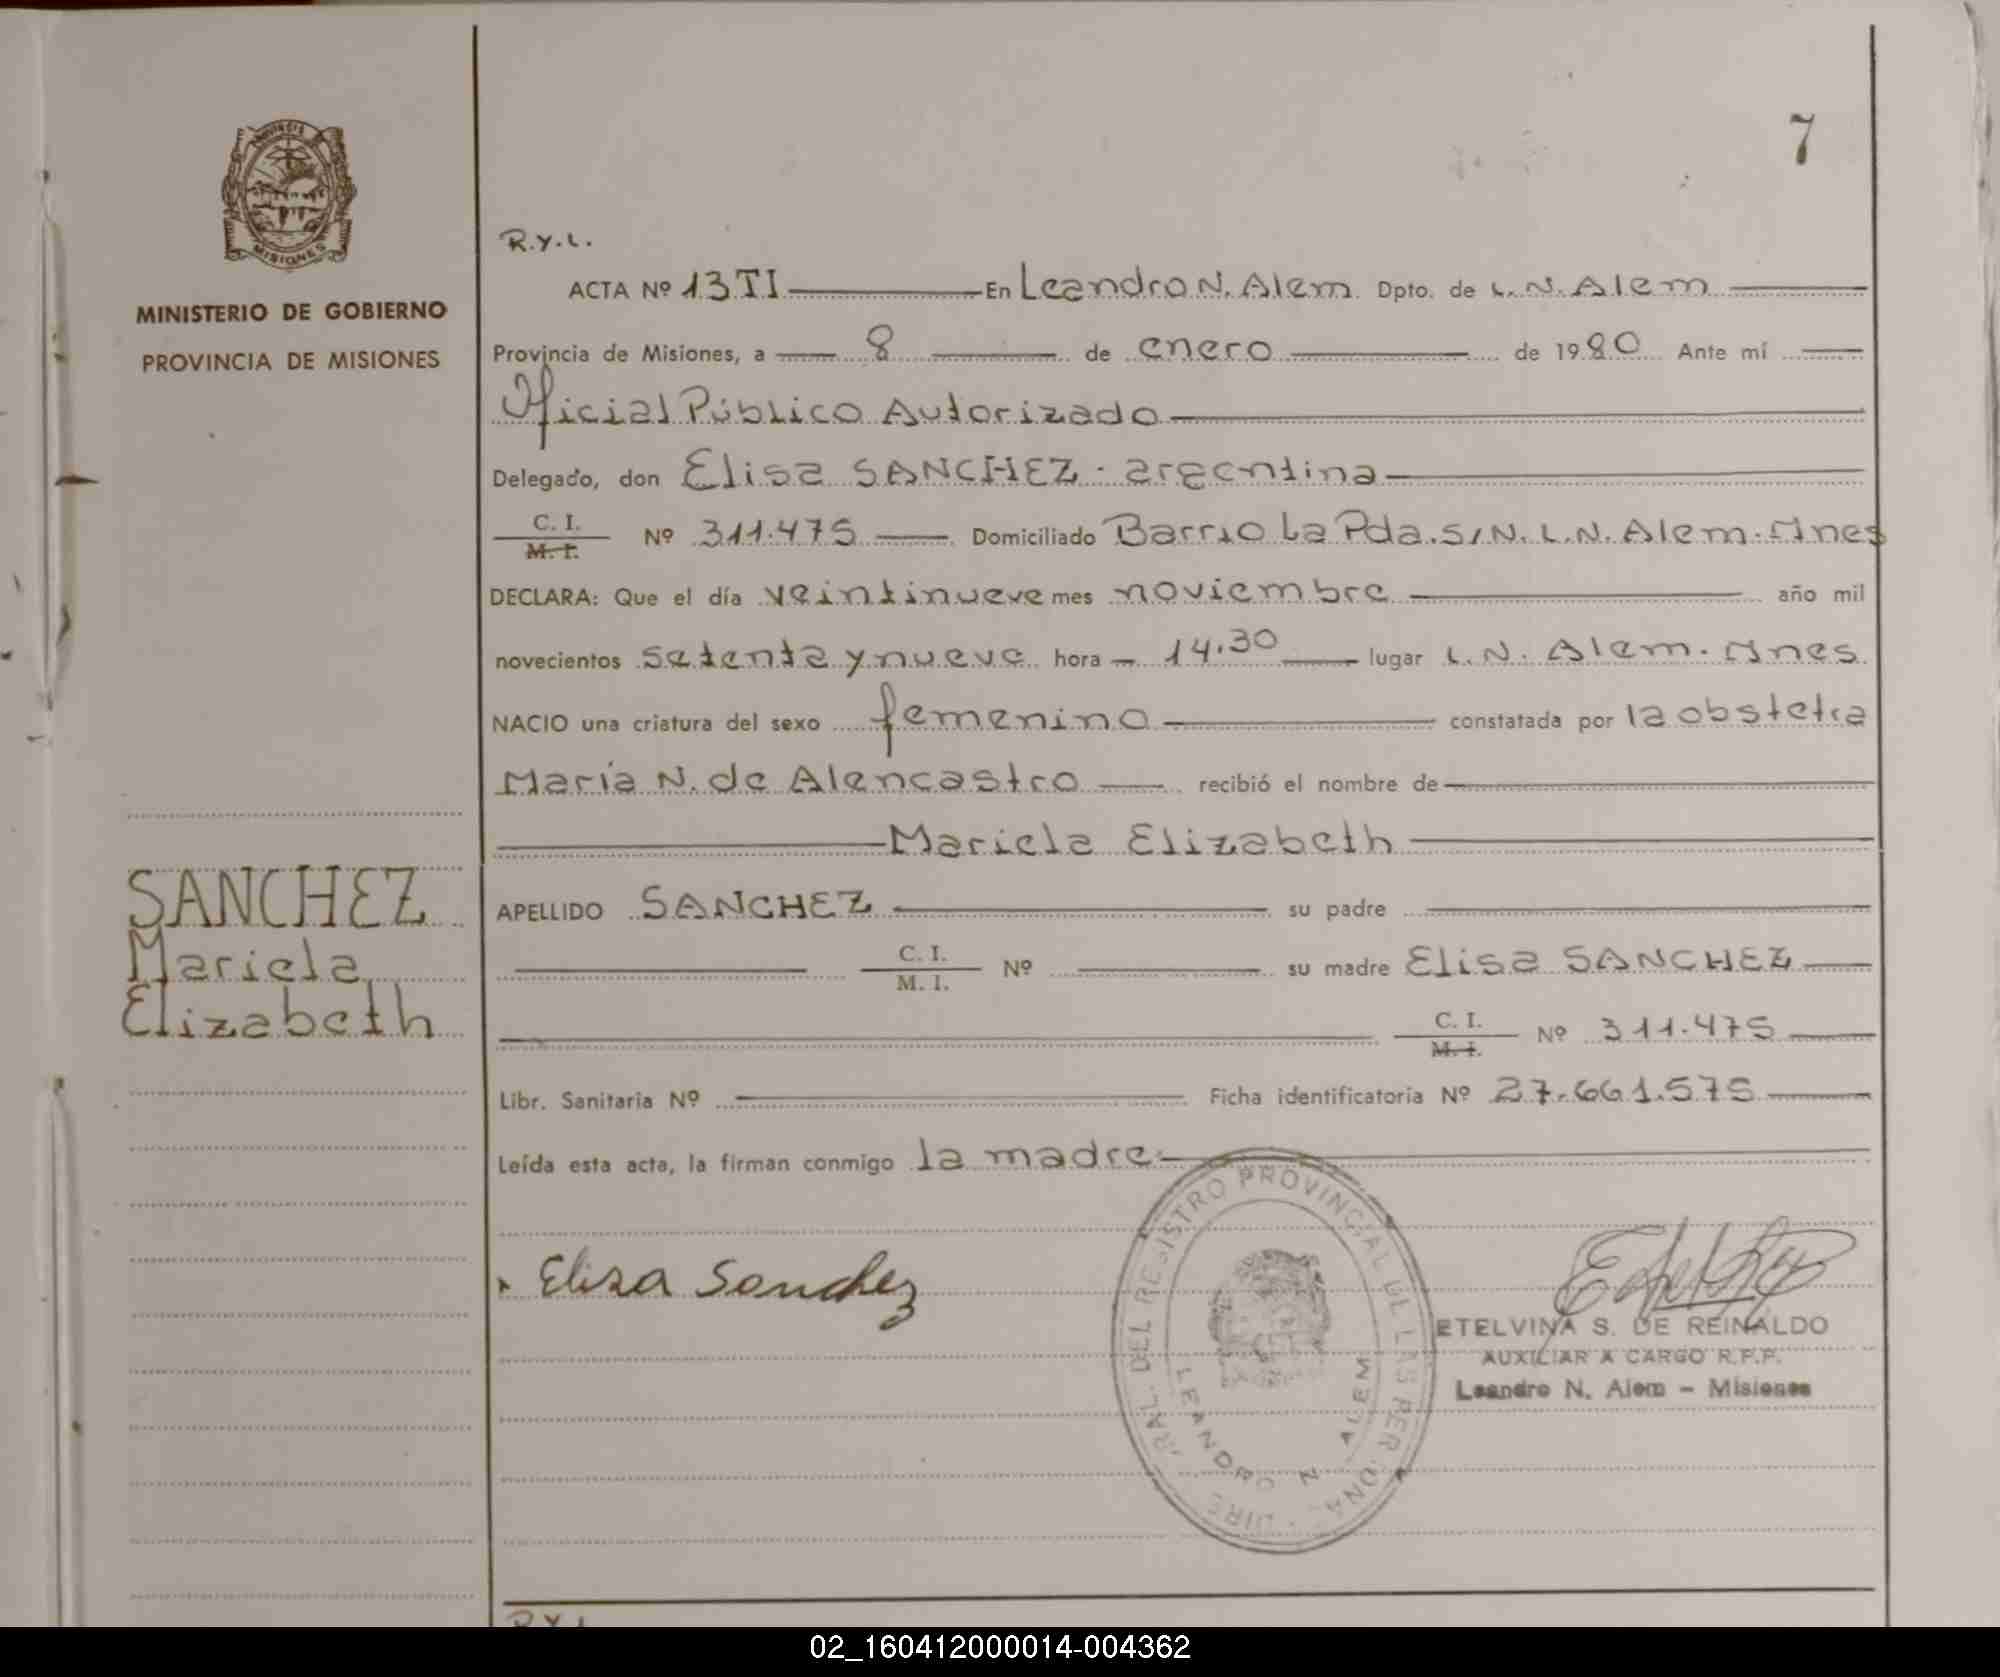 7
PROVINCIA
MISIONES
MINISTERIO DE GOBIERNO
PROVINCIA DE MISIONES
R.Y.L.
ACTA Nº 13 TI En Leandro N. Alem Dpto. de L.N. Alem
Provincia de Misiones, a 8 de enero de 1980 Ante mí
Oficial Público Autorizado
Delegado, don Elisa SANCHEZ - argentina
C. I. / M. I. Nº 311.475 Domiciliado Barrio La Pda. S/N. L.N. Alem. Mnes
DECLARA: Que el día veintinueve mes noviembre año mil
novecientos setenta y nueve hora 14,30 lugar L.N. Alem. Mnes
NACIO una criatura del sexo femenino constatada por la obstetra
María N. de Alencastro recibió el nombre de
Mariela Elizabeth
SANCHEZ
Mariela
Elizabeth
APELLIDO SANCHEZ su padre
C. I. / M. I. Nº su madre Elisa SANCHEZ
C. I. / M. I. Nº 311.475
Libr. Sanitaria Nº Ficha identificatoria Nº 27.661.575
Leída esta acta, la firman conmigo la madre
Elisa Sanchez
DEL REGISTRO PROVINCIAL DE LAS PERSONAS
LEANDRO N. ALEM
ETELVINA S. DE REINALDO
AUXILIAR A CARGO R.P.P.
Leandro N. Alem - Misiones
R.Y.L
02_160412000014-004362